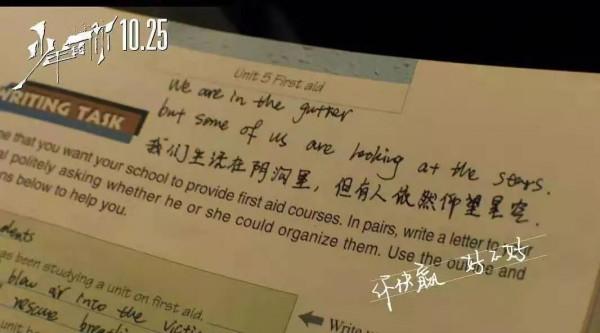 少年的你 10.25
Unit 5 First aid
We are in the gutter
but some of us are looking at the stars.
我们生活在阴沟里，但有人依然仰望星空.
WRITING TASK
ne that you want your school to provide first aid courses. In pairs, write a letter to
al politely asking whether he or she could organize them. Use the outline and
ns below to help you.
你快赢 好不好
dents
as been studying a unit on first aid.
blow air into the victi
rescue breathi
unit
Write